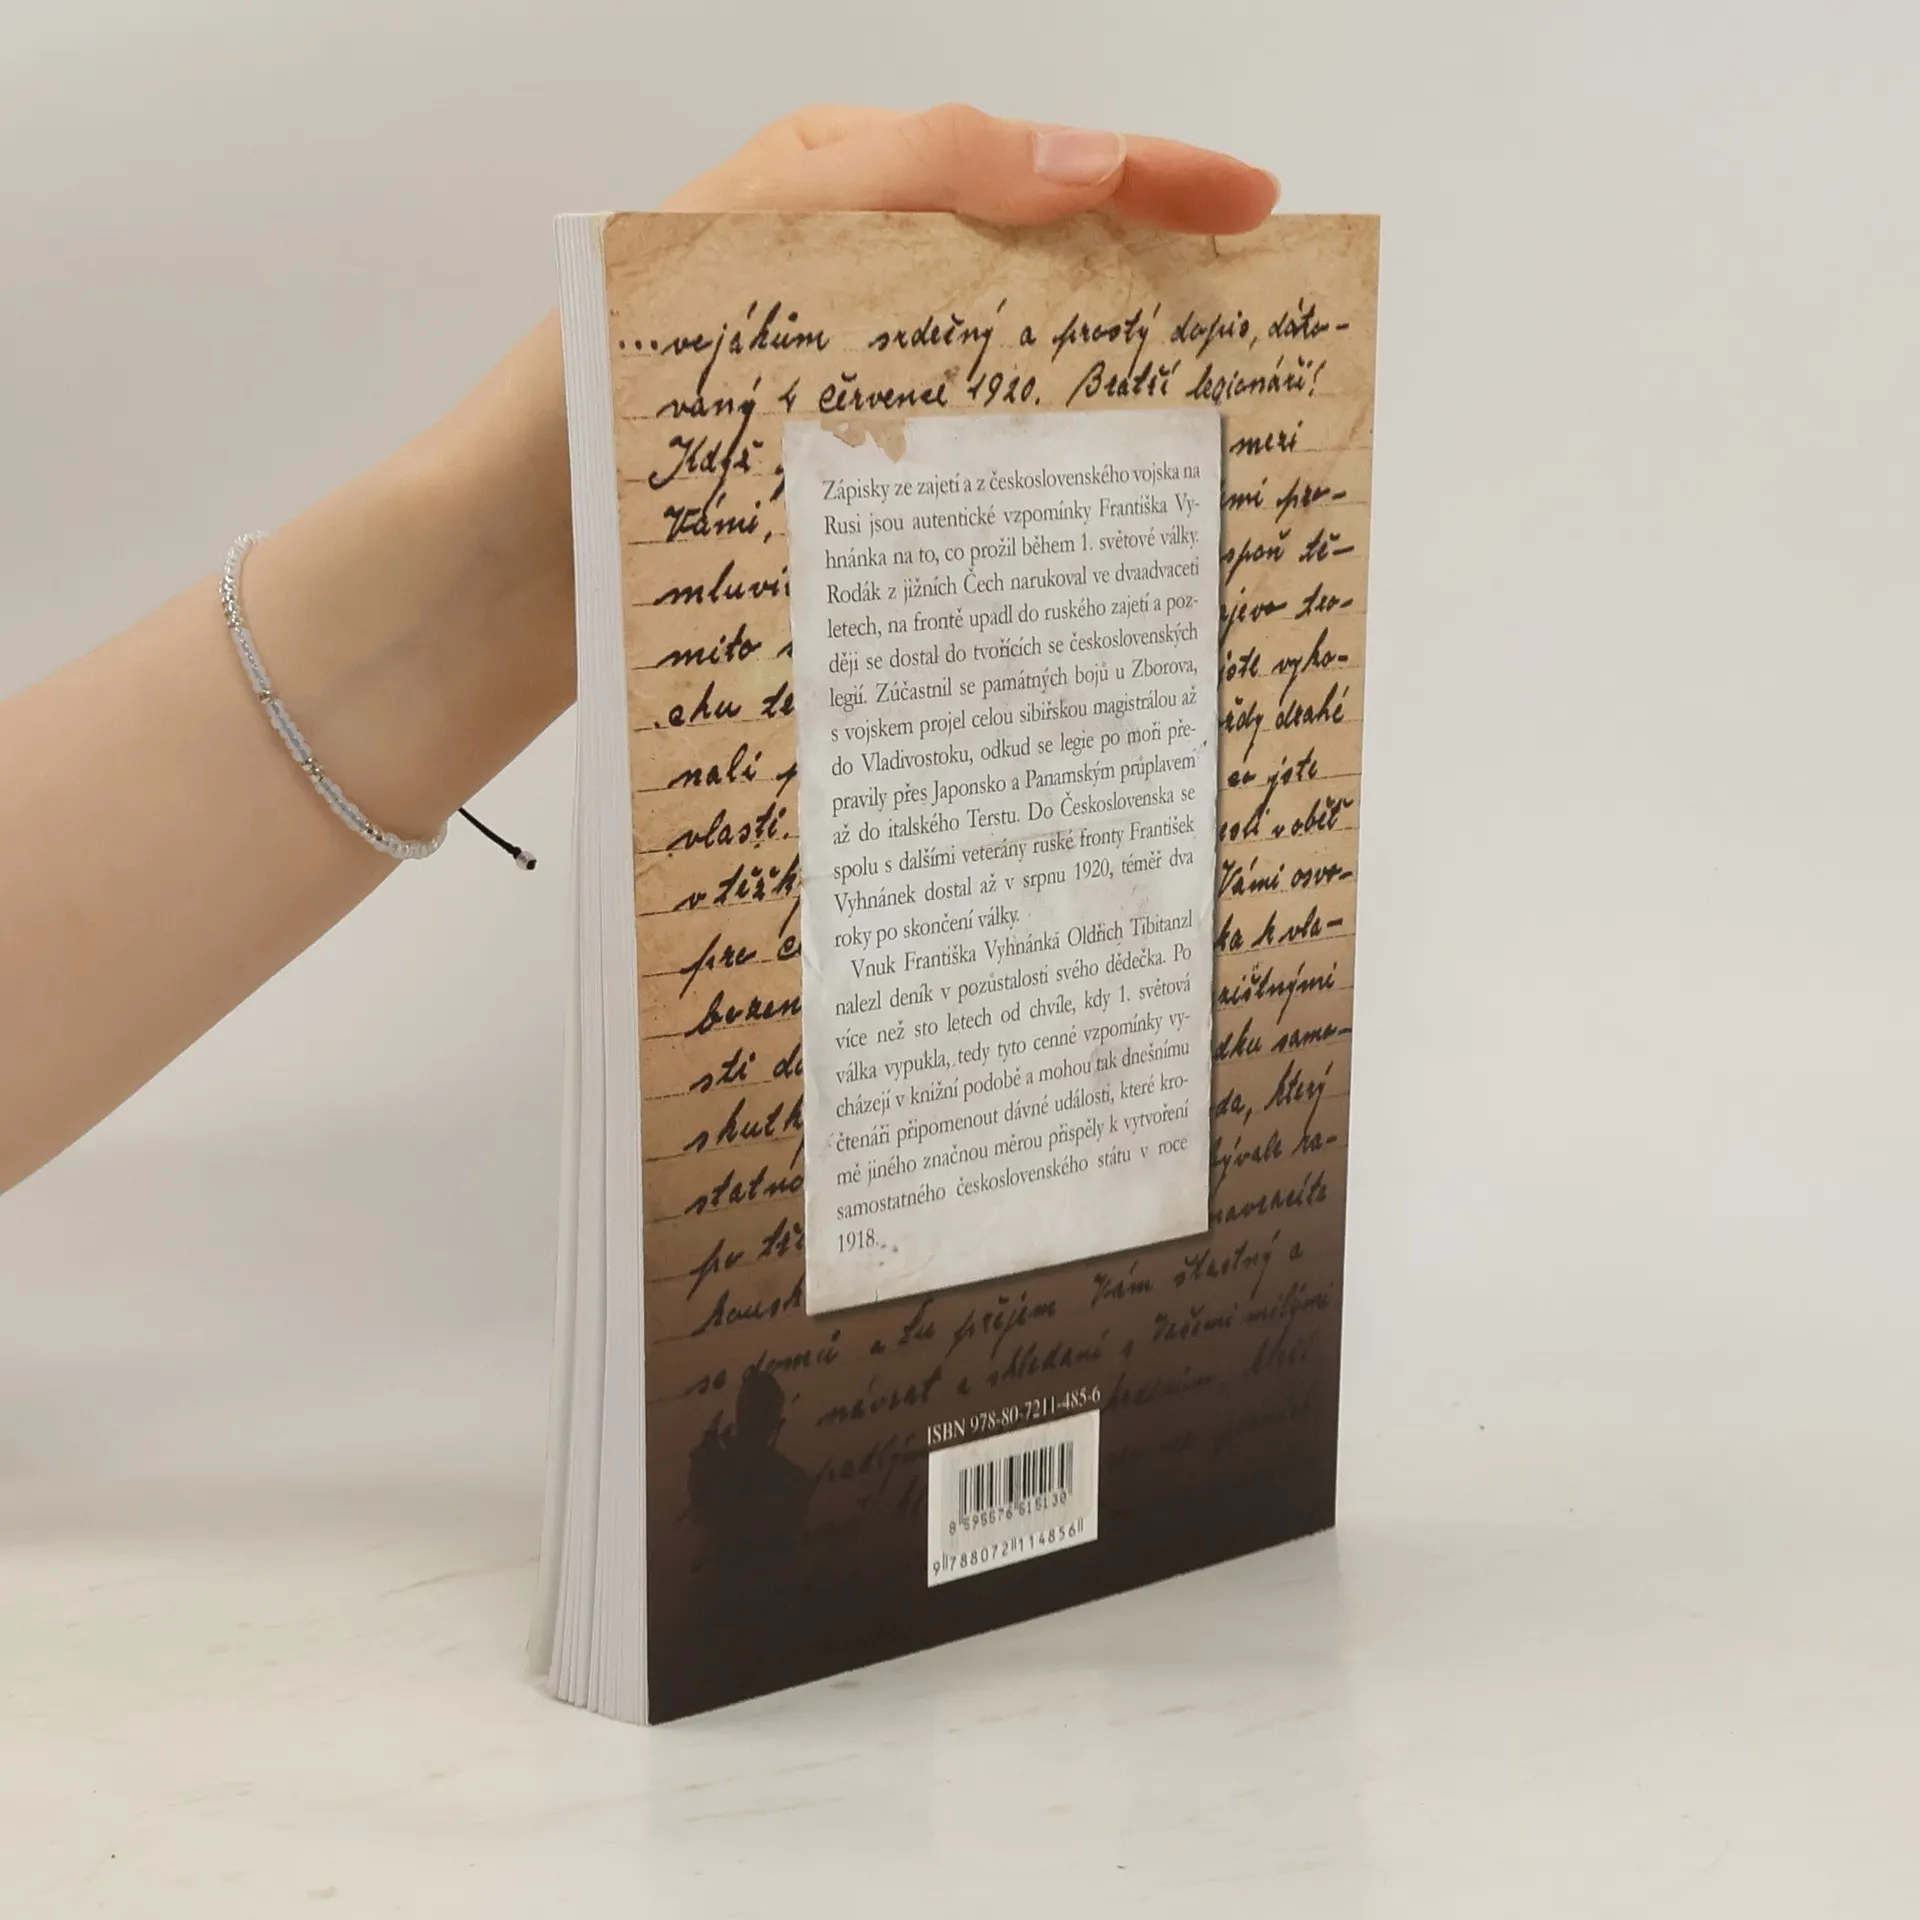 ...vojákům srdečný a prostý dopis, dáto-
vaný 4 července 1920. Bratří legionáři!
Když
mezi
Vámi,
pro-
mluvi
spoň tě-
mito
chu
jste vyko-
nali
drahé
vlasti.
co jste
v těžk
v oběť
Vámi osvo-
k vla-
bezen
zištnými
sti
samo-
skutk
který
statno
po
navracíte
se domů a tu přejem Vám šťastný a
návrat a shledání s Vašemi milými
Zápisky ze zajetí a z československého vojska na
Rusi jsou autentické vzpomínky Františka Vy-
hnánka na to, co prožil během 1. světové války.
Rodák z jižních Čech narukoval ve dvaadvaceti
letech, na frontě upadl do ruského zajetí a poz-
ději se dostal do tvořících se československých
legií. Zúčastnil se památných bojů u Zborova,
s vojskem projel celou sibiřskou magistrálou až
do Vladivostoku, odkud se legie po moři pře-
pravily přes Japonsko a Panamským průplavem
až do italského Terstu. Do Československa se
spolu s dalšími veterány ruské fronty František
Vyhnánek dostal až v srpnu 1920, téměř dva
roky po skončení války.
Vnuk Františka Vyhnánka Oldřich Tibitanzl
nalezl deník v pozůstalosti svého dědečka. Po
více než sto letech od chvíle, kdy 1. světová
válka vypukla, tedy tyto cenné vzpomínky vy-
cházejí v knižní podobě a mohou tak dnešnímu
čtenáři připomenout dávné události, které kro-
mě jiného značnou měrou přispěly k vytvoření
samostatného československého státu v roce
1918.
ISBN 978-80-7211-485-6
8 595576 515130
9 788072 114856